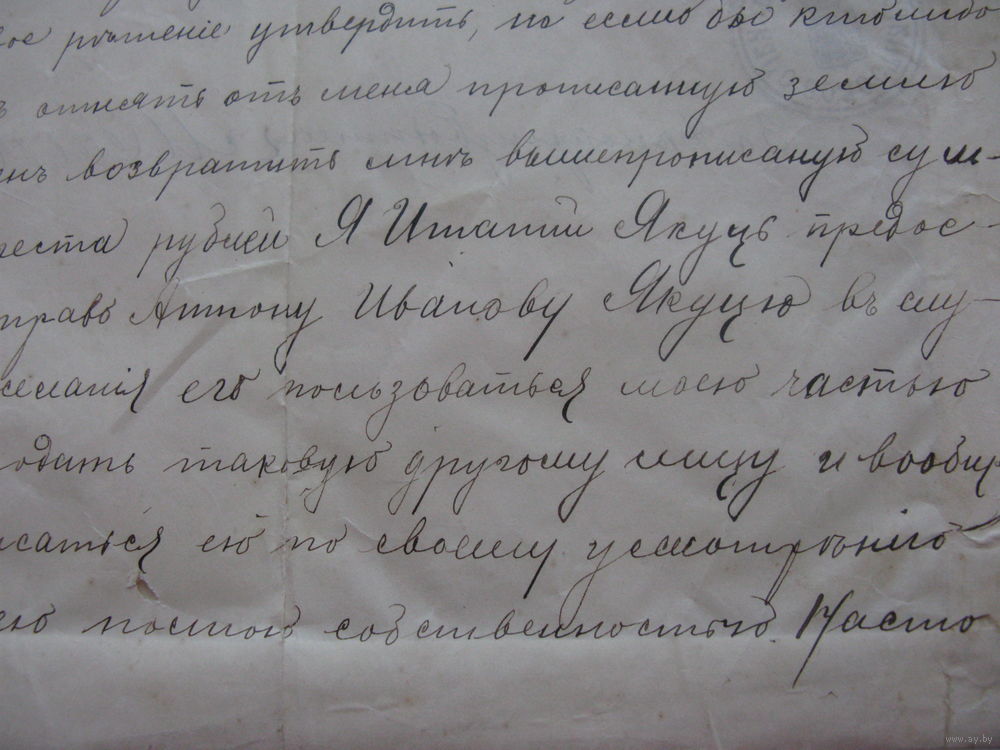 ое рѣшеніе утвердить, но если бы кто либо
ъ отнять отъ меня прописанную землю
енъ возвратить мнѣ вышепрописаную сум-
реста рублей Я Игнатій Якуць предос-
право Антону Иванову Якуцю въ слу-
желанія его пользоваться моею частью
одать таковую другому лицу и вообщ
исаться ею по своему усмотрѣнію
ею полною собственностью. Насто
www.ay.by